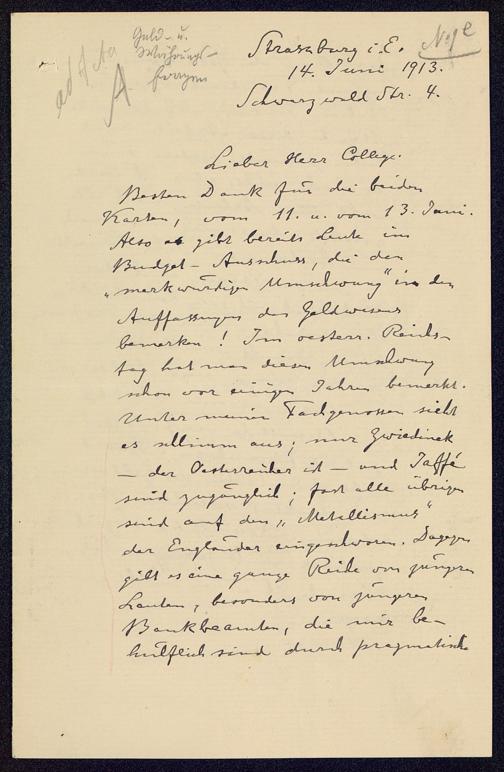 ad Acta
A
Geld- u.
Währungs-
fragen
No 1e
Strassburg i. E.
14. Juni 1913.
Schwarzwald Str. 4.
Lieber Herr College.
Besten Dank für die beiden
Karten, vom 11. u. vom 13. Juni.
Also es gibt bereits Leute im
Budget-Ausschuss, die den
„merkwürdigen Umschwung" in den
Auffassungen des Geldwesens
bemerken! Im oesterr. Reichs-
tag hat man diesen Umschwung
schon vor einigen Jahren bemerkt.
Unter meinen Fachgenossen sieht
es schlimm aus; nur Zwiedinek
— der Oesterreicher ist — und Jaffé
sind zugänglich; fast alle übrigen
sind auf den „Metallismus"
der Engländer eingeschworen. Dagegen
gibt es eine ganze Reihe von jüngeren
Leuten, besonders von jüngeren
Bankbeamten, die mir be-
hülflich sind durch pragmatische